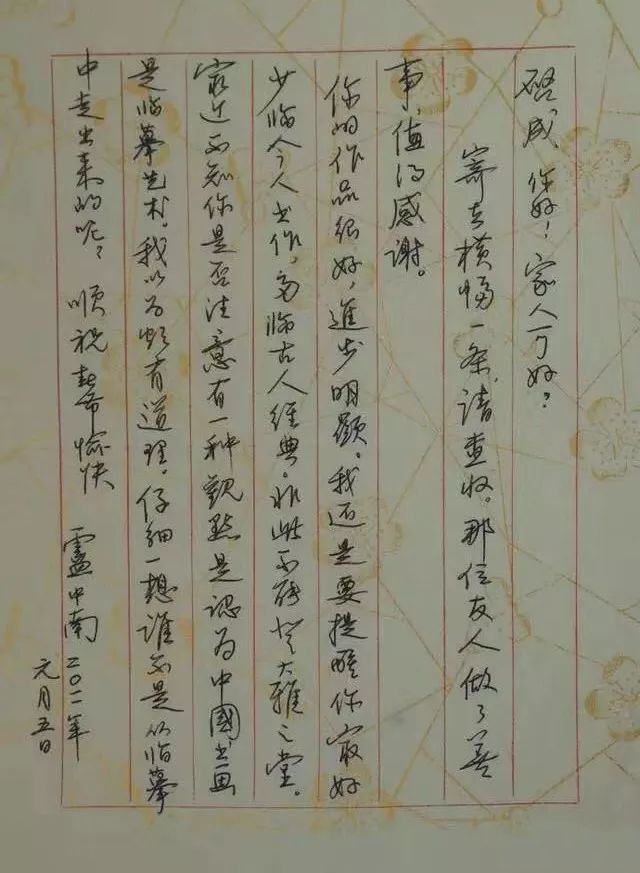 啓成 你好！家人可好？
寄去横幅一条，请查收。那位友人做了善
事，值得感谢。
你的作品很好，進步明顯。我还是要提醒你最好
少临今人书作，多临古人经典。非此不能登大雅之堂。
最近不知你是否注意有一种觀點是認为中國书画
是临摹艺术。我以为颇有道理。仔细一想谁不是从临摹
中走出来的呢？ 顺祝 愉快 盧中南 二〇一一年
元月五日